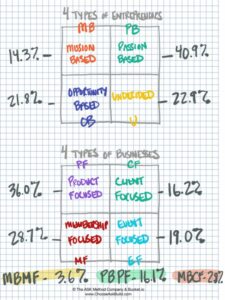 4 TYPES OF ENTREPRENEURS
MB PB
MISSION BASED PASSION BASED
14.3% 40.9%
OPPORTUNITY BASED UNDECIDED
21.8% 22.9%
OB U
4 TYPES OF BUSINESSES
PF CF
36.0% PRODUCT FOCUSED CLIENT FOCUSED 16.2%
28.7% MEMBERSHIP FOCUSED EVENT FOCUSED 19.0%
MF EF
© The ASK Method Company & Bucket.io
www.ChooseAskBuild.com
MBMF - 3.6% PBPF - 16.1% MBCF-2.8%